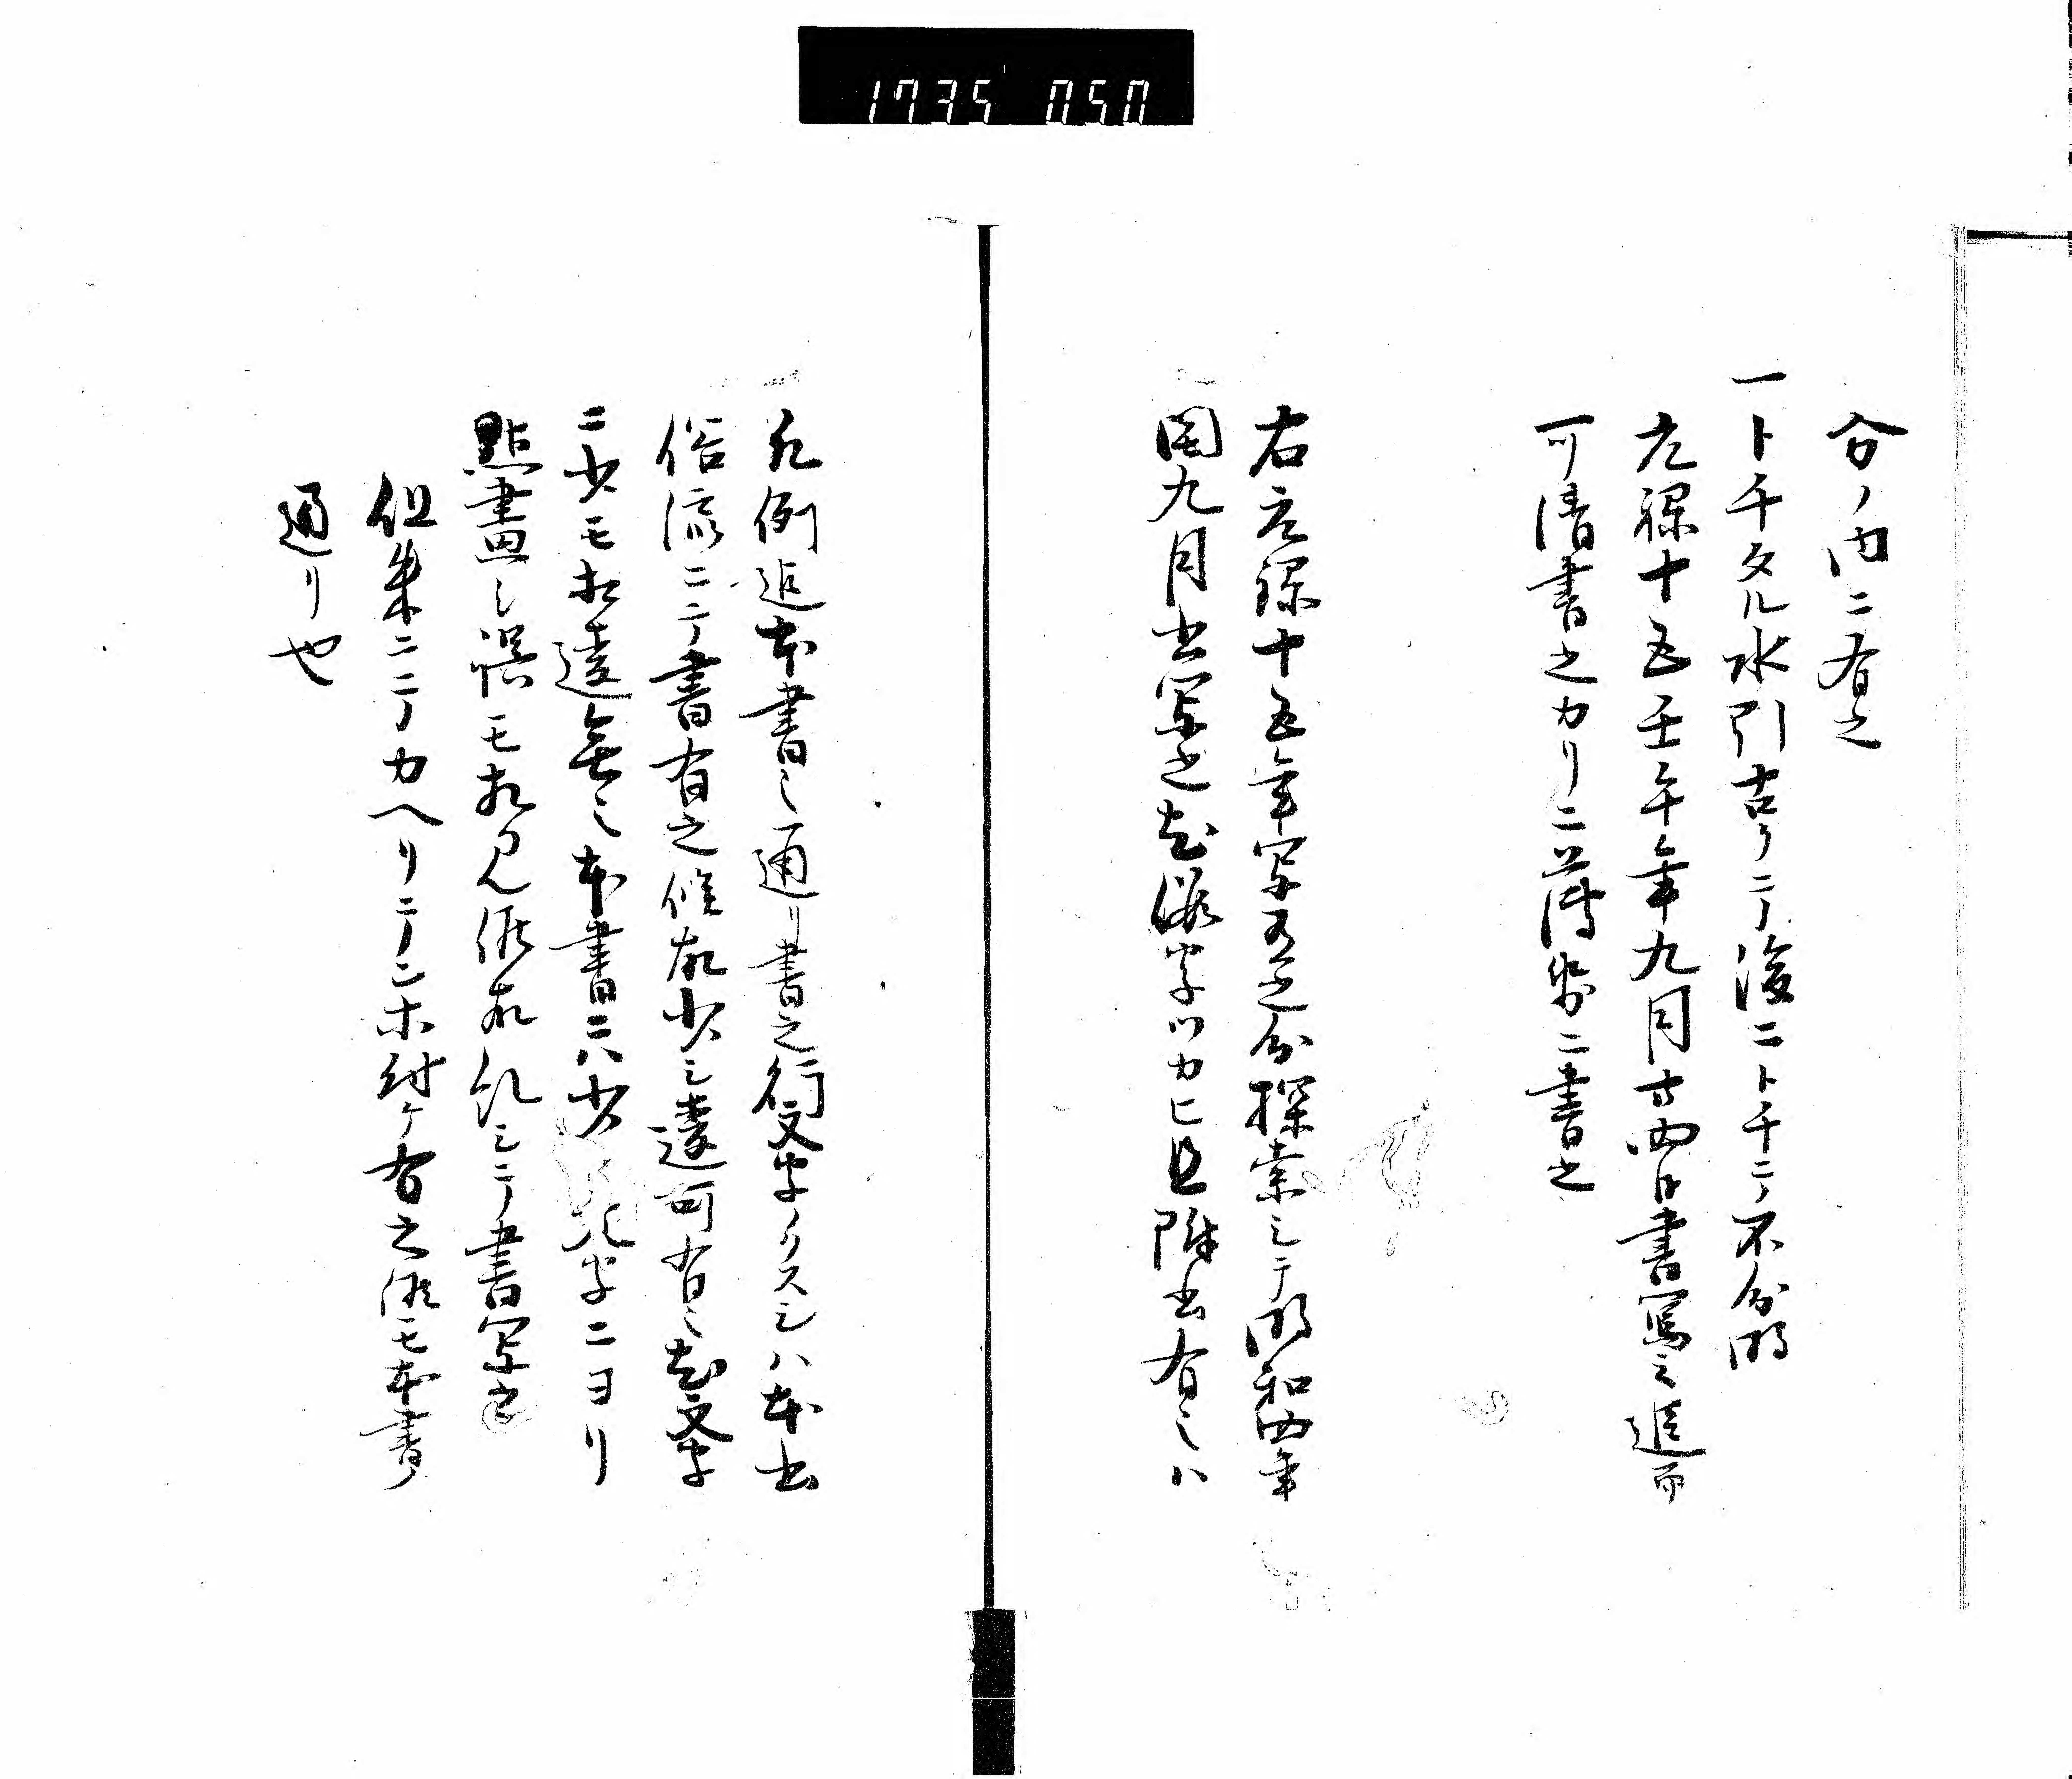 1735 050
分ノ内ニ有之
一トチタル水引古クニテ後ニトチニテ不分明
元禄十五壬午年九月廿四日書写之追而
可清書之カリニ薄紙ニ書之
右元禄十五年写有之分探索シテ明和四年
閏九月書写之尤仮字ツカヒ且除書有之ハ
凡例迄本書之通リ書之行文字ノクスシハ本書
俗流ニテ書有之候故少シ違可有之尤文字
ニ少モ相違無之本書ニハ少 文字ニヨリ
點畫之誤モ相見候故糺シテ書写也
但朱ニテカヘリテンホ付ケ有之候モ本書ノ
通リ也